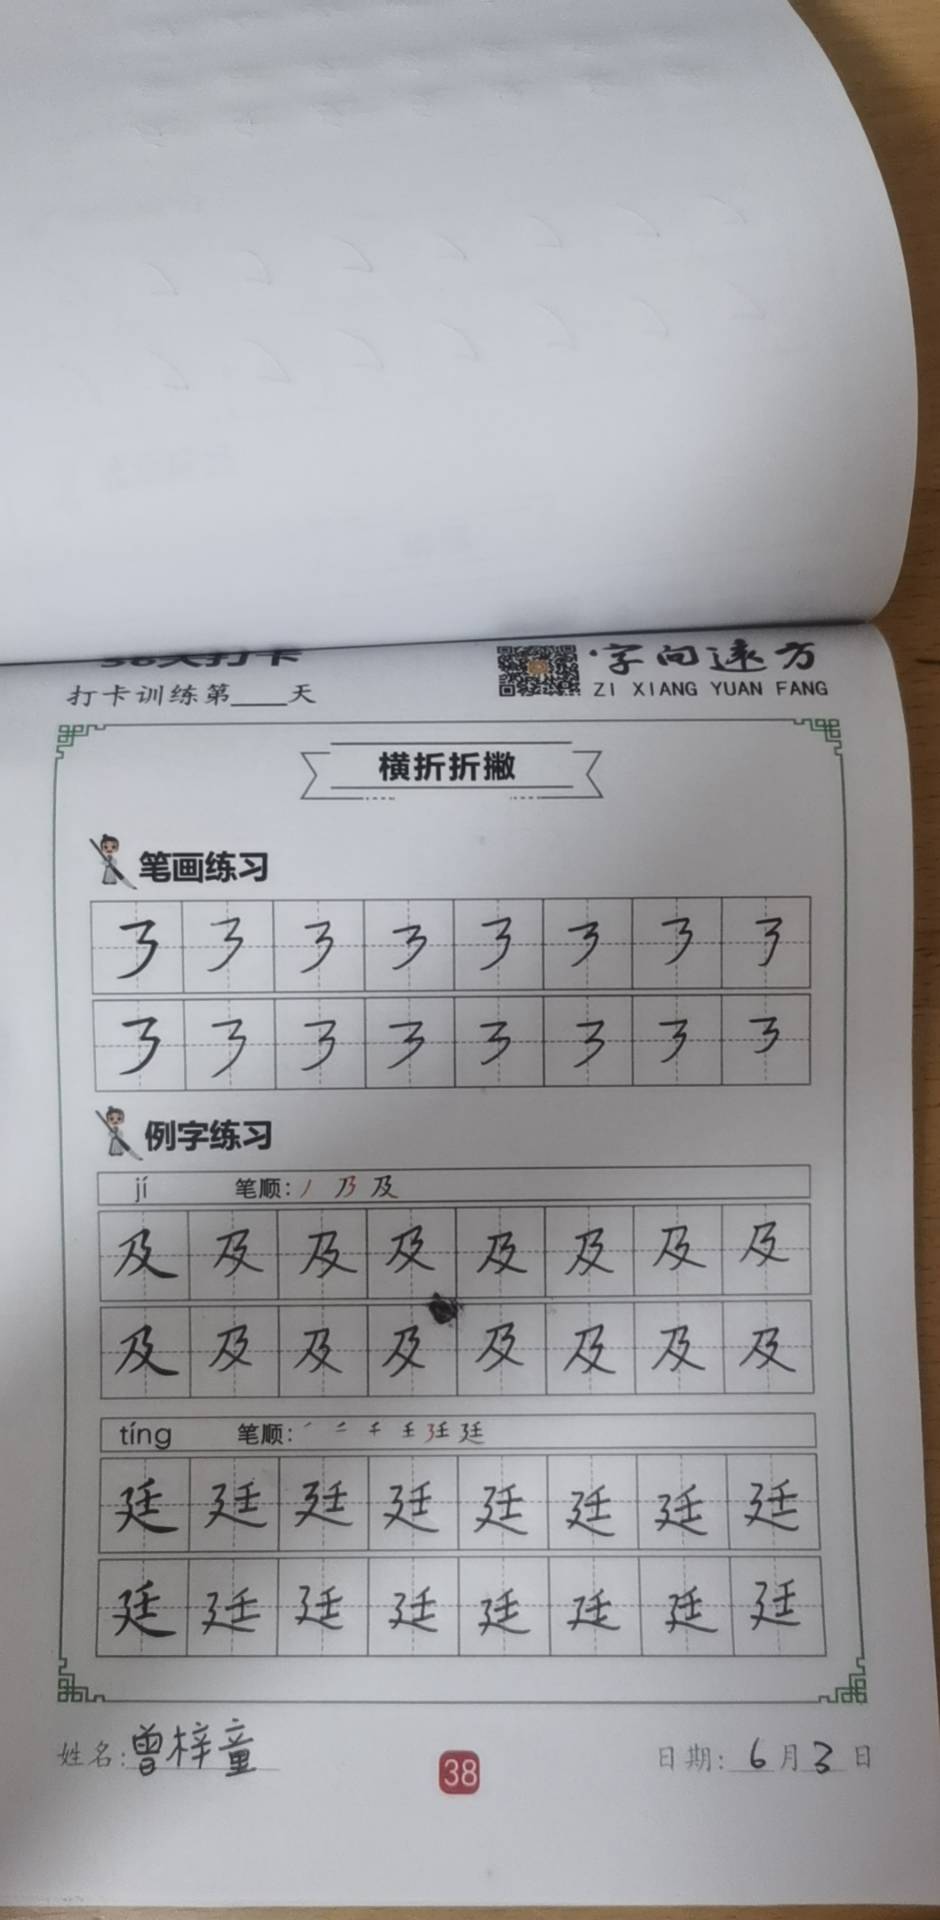 打卡训练第____天
字向远方
ZI XIANG YUAN FANG
横折折撇
笔画练习
㇋ ㇋ ㇋ ㇋ ㇋ ㇋ ㇋ ㇋
㇋ ㇋ ㇋ ㇋ ㇋ ㇋ ㇋ ㇋
例字练习
jí 笔顺：丿 乃 及
及 及 及 及 及 及 及 及
及 及 及 及 及 及 及 及
tíng 笔顺：
廷 廷 廷 廷 廷 廷 廷 廷
廷 廷 廷 廷 廷 廷 廷 廷
姓名：曾梓童
38
日期：6月3日